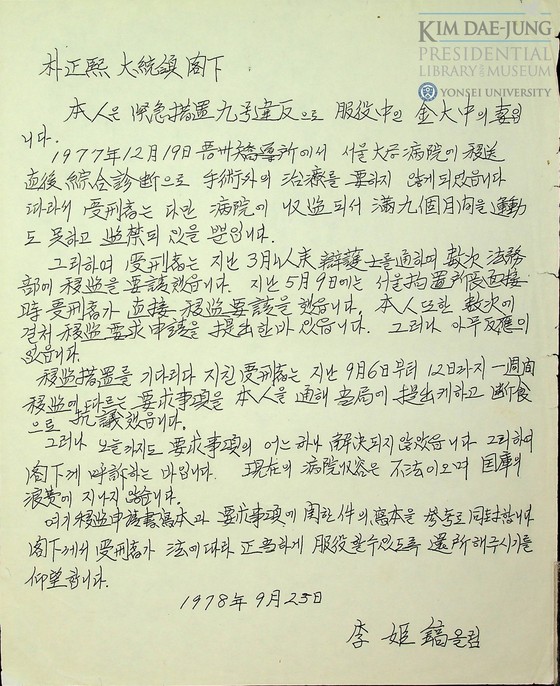 KIM DAE-JUNG
PRESIDENTIAL
LIBRARY & MUSEUM
YONSEI UNIVERSITY
朴正熙 大統領 閣下
本人은 緊急措置九号違反으로 服役中인 金大中의 妻입
니다.
1977年12月19日 晋州矯導所에서 서울大学病院에 移送
直後 綜合診断으로 手術外의 治療를 要하지 않게 되었습니다
따라서 受刑者는 다만 病院에 收監되서 滿九個月間을 運動
도 못하고 監禁되 있을 뿐입니다.
그리하여 受刑者는 지난 3月4人의 辯護士를 通하여 數次 法務
部에 移監을 要請했습니다. 지난 5月9日에는 서울拘置所長面接
時 受刑者가 直接 移監要請을 했습니다. 本人 또한 數次에
걸쳐 移監要求申請을 提出한바 있습니다. 그러나 아무反應이
없습니다.
移監措置를 기다리다 지친 受刑者는 지난 9月6日부터 12日까지 一週間
移監에 따르는 要求事項을 本人을 通해 当局에 提出케하고 断食
으로 抗議했습니다.
그러나 오늘까지도 要求事項의 어느 하나 解決되지 않았습니다 그리하여
閣下께 呼訴하는 바입니다. 現在의 病院收容은 不法이오며 国庫의
浪費에 지나지 않습니다.
여기 移監申請書寫本과 要求事項에 関한件의 寫本을 參考로 同封합니다
閣下께서 受刑者가 法에따라 正当하게 服役할수있도록 還所해주시기를
仰望합니다.
1978年 9月23日
李 姬 鎬 올림